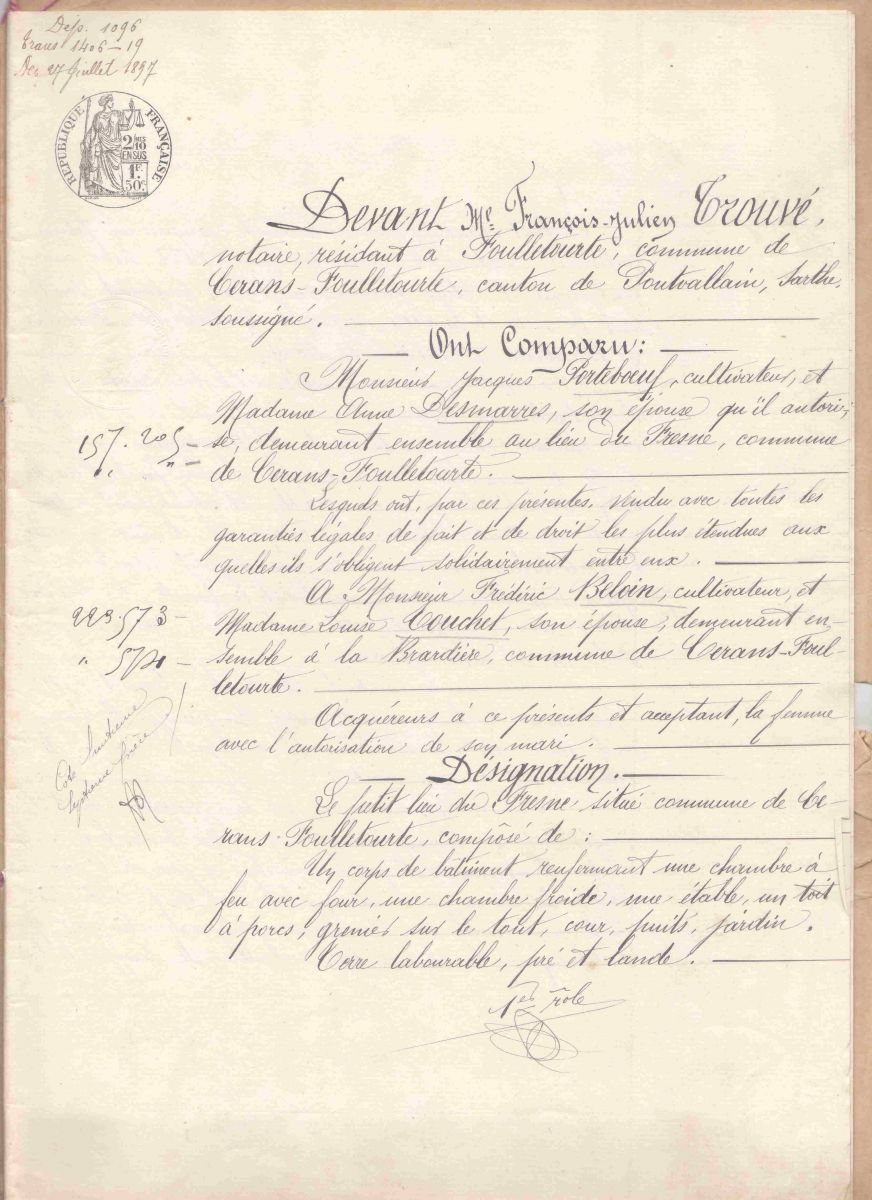 Dép. 1096
Trans 1406-19
Dec. 27 Juillet 1897
REPUBLIQUE FRANÇAISE
2/10 MES
EN SUS
1F.
50c.
Devant Me. François-Julien Trouvé,
notaire, résidant à Foulletourte, commune de
Cerans-Foulletourte, canton de Pontvallain, Sarthe,
soussigné.
Ont Comparu:
Monsieur Jacques Porteboeuf, cultivateur, et
Madame Anne Desmarres, son épouse qu'il autori-
157. 205 - se, demeurant ensemble au lieu du Fresne, commune
de Cerans-Foulletourte.
Lesquels ont, par ces présentes, vendu avec toutes les
garanties légales de fait et de droit les plus étendues aux
quelles ils s'obligent solidairement entre eux.
A Monsieur Frédéric Beloin, cultivateur, et
223 573 - Madame Louise Touchet, son épouse, demeurant en-
semble à la Brardière, commune de Cerans-Foul-
letourte.
Acquéreurs à ce présents et acceptant, la femme
avec l'autorisation de son mari.
Désignation.
Cote
Le petit lieu du Fresne situé commune de Ce-
rans-Foulletourte, composé de :
Un corps de bâtiment renfermant une chambre à
feu avec four, une chambre froide, une étable, un toit
à porcs, grenier sur le tout, cour, puits, jardin.
Terre labourable, pré et lande.
1er rôle